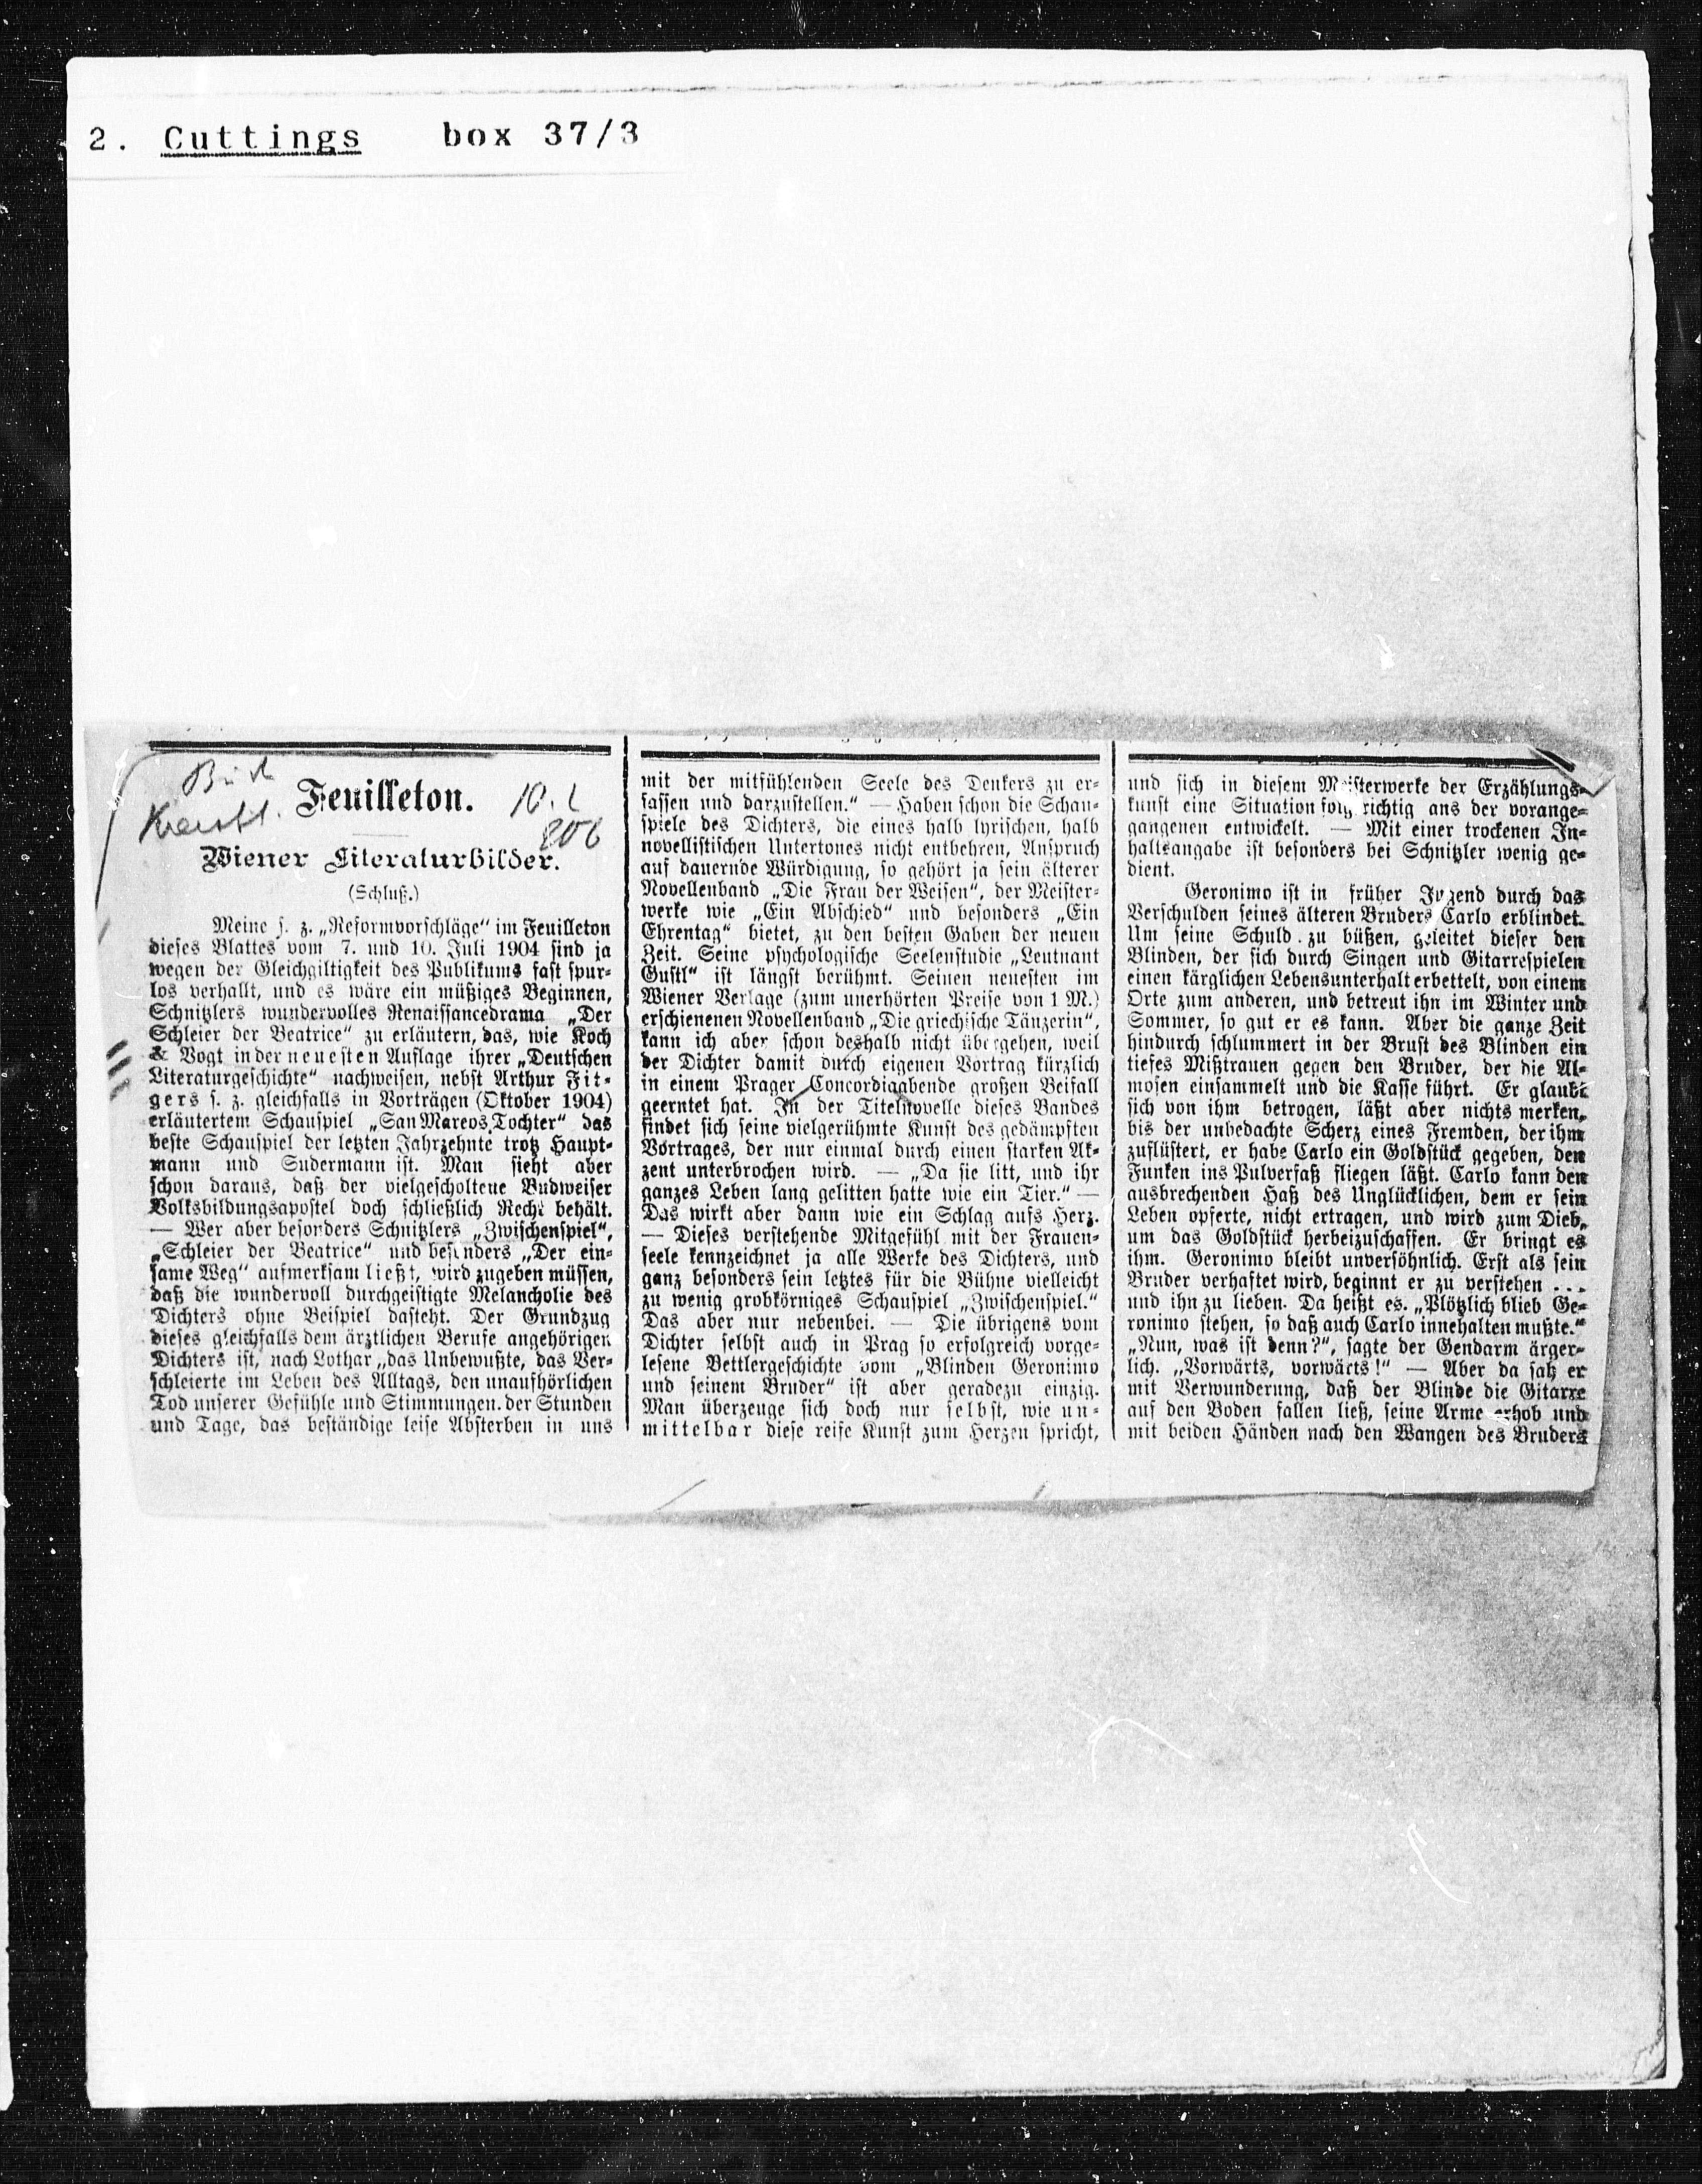 2. Cuttings box 37/3
Feuilleton.
Wiener Literaturbilder.
(Schluß.)
Meine s. z. „Reformvorschläge“ im Feuilleton
dieses Blattes vom 7. und 10. Juli 1904 sind ja
wegen der Gleichgiltigkeit des Publikums fast spur-
los verhallt, und es wäre ein müßiges Beginnen,
Schnitzlers wundervolles Renaissancedrama „Der
Schleier der Beatrice“ zu erläutern, das, wie Koch
& Vogt in der neuesten Auflage ihrer „Deutschen
Literaturgeschichte“ nachweisen, nebst Arthur Fit-
gers s. z. gleichfalls in Vorträgen (Oktober 1904)
erläutertem Schauspiel „San Marcos Tochter“ das
beste Schauspiel der letzten Jahrzehnte trotz Haupt-
mann und Sudermann ist. Man sieht aber
schon daraus, daß der vielgescholtene Budweiser
Volksbildungsapostel doch schließlich Recht behält.
— Wer aber besonders Schnitzlers „Zwischenspiel“,
„Schleier der Beatrice“ und besonders „Der ein-
same Weg“ aufmerksam ließt, wird zugeben müssen,
daß die wundervoll durchgeistigte Melancholie des
Dichters ohne Beispiel dasteht. Der Grundzug
dieses gleichfalls dem ärztlichen Berufe angehörigen
Dichters ist, nach Lothar „das Unbewußte, das Ver-
schleierte im Leben des Alltags, den unaufhörlichen
Tod unserer Gefühle und Stimmungen. der Stunden
und Tage, das beständige leise Absterben in uns
mit der mitfühlenden Seele des Denkers zu er-
fassen und darzustellen.“ — Haben schon die Schau-
spiele des Dichters, die eines halb lyrischen, halb
novellistischen Untertones nicht entbehren, Anspruch
auf dauernde Würdigung, so gehört ja sein älterer
Novellenband „Die Frau der Weisen“, der Meister-
werke wie „Ein Abschied“ und besonders „Ein
Ehrentag“ bietet, zu den besten Gaben der neuen
Zeit. Seine psychologische Seelenstudie „Leutnant
Gustl“ ist längst berühmt. Seinen neuesten im
Wiener Verlage (zum unerhörten Preise von 1 M.)
erschienenen Novellenband „Die griechische Tänzerin“,
kann ich aber schon deshalb nicht übergehen, weil
der Dichter damit durch eigenen Vortrag kürzlich
in einem Prager Concordiaabende großen Beifall
geerntet hat. In der Titelnovelle dieses Bandes
findet sich seine vielgerühmte Kunst des gedämpften
Vortrages, der nur einmal durch einen starken Ak-
zent unterbrochen wird. — „Da sie litt, und ihr
ganzes Leben lang gelitten hatte wie ein Tier.“ —
Das wirkt aber dann wie ein Schlag aufs Herz.
— Dieses verstehende Mitgefühl mit der Frauen-
seele kennzeichnet ja alle Werke des Dichters, und
ganz besonders sein letztes für die Bühne vielleicht
zu wenig grobkörniges Schauspiel „Zwischenspiel.“
Das aber nur nebenbei. — Die übrigens vom
Dichter selbst auch in Prag so erfolgreich vorge-
lesene Bettlergeschichte vom „Blinden Geronimo
und seinem Bruder“ ist aber geradezu einzig.
Man überzeuge sich doch nur selbst, wie un-
mittelbar diese reife Kunst zum Herzen spricht,
und sich in diesem Meisterwerke der Erzählungs-
kunst eine Situation folgerichtig aus der vorange-
gangenen entwickelt. — Mit einer trockenen In-
haltsangabe ist besonders bei Schnitzler wenig ge-
dient.
Geronimo ist in früher Jugend durch das
Verschulden seines älteren Bruders Carlo erblindet.
Um seine Schuld zu büßen, geleitet dieser den
Blinden, der sich durch Singen und Gitarrespielen
einen kärglichen Lebensunterhalt erbettelt, von einem
Orte zum anderen, und betreut ihn im Winter und
Sommer, so gut er es kann. Aber die ganze Zeit
hindurch schlummert in der Brust des Blinden ein
tiefes Mißtrauen gegen den Bruder, der die Al-
mosen einsammelt und die Kasse führt. Er glaubt
sich von ihm betrogen, läßt aber nichts merken,
bis der unbedachte Scherz eines Fremden, der ihm
zuflüstert, er habe Carlo ein Goldstück gegeben, den
Funken ins Pulverfaß fliegen läßt. Carlo kann den
ausbrechenden Haß des Unglücklichen, dem er sein
Leben opferte, nicht ertragen, und wird zum Dieb,
um das Goldstück herbeizuschaffen. Er bringt es
ihm. Geronimo bleibt unversöhnlich. Erst als sein
Bruder verhaftet wird, beginnt er zu verstehen ...
und ihn zu lieben. Da heißt es. „Plötzlich blieb Ge-
ronimo stehen, so daß auch Carlo innehalten mußte.“
„Nun, was ist denn?“, sagte der Gendarm ärger-
lich. „Vorwärts, vorwärts!“ — Aber da sah er
mit Verwunderung, daß der Blinde die Gitarre
auf den Boden fallen ließ, seine Arme erhob und
mit beiden Händen nach den Wangen des Bruders